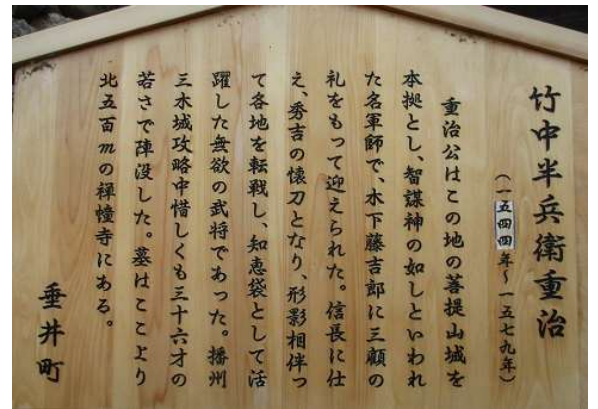 竹中半兵衛重治
（一五四四年～一五七九年）
重治公はこの地の菩提山城を
本拠とし、智謀神の如しといわれ
た名軍師で、木下藤吉郎に三顧の
礼をもって迎えられた。信長に仕
え、秀吉の懐刀となり、形影相伴っ
て各地を転戦し、知恵袋として活
躍した無欲の武将であった。播州
三木城攻略中惜しくも三十六才の
若さで陣没した。墓はここより
北五百mの禅幢寺にある。
垂井町